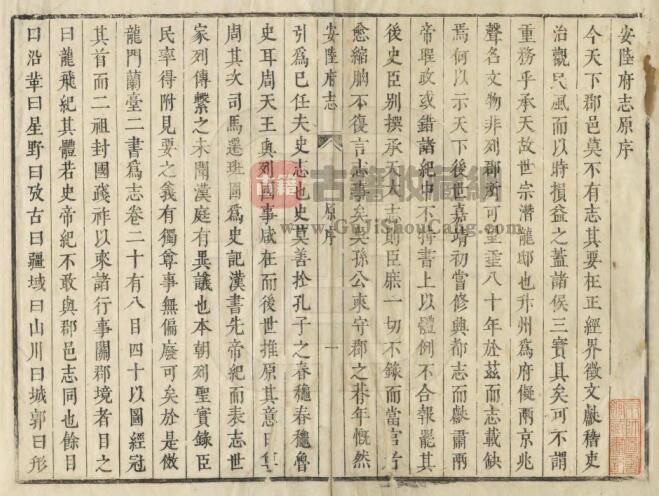 安陸府志原序
今天下郡邑莫不有志其要在正經界徵文獻稽吏
治觀民風而以時損益之蓋諸侯三寶具矣可不謂
重務乎承天故世宗潛龍邸也升州爲府儗兩京兆
聲名文物非列郡所可望壹八十年於茲而志載缺
焉何以示天下後世嘉靖初嘗修興都志而獻肅兩
帝聖政或錯諸紀中不得書上以體例不合報罷其
後史臣别撰承天大志則臣庶一切不錄而當官者
愈縮朒不復言志事矣吳孫公來守郡之朞年慨然
安陸府志
原序
一
引爲已任夫史志也史莫善於孔子之春穐春穐魯
史耳周天王與列國事咸在而後世推原其意曰隼
周其次司馬遷班固爲史記漢書先帝紀而表志世
家列傳繫之未聞漢庭有異議也本朝列聖實錄臣
民率得附見要之義有獨尊事無偏廢可矣於是倣
龍門蘭臺二書爲志卷二十有八目四十以圖經冠
其首而二祖封國踐祚以來諸行事關郡境者目之
曰龍飛紀其體若史帝紀不敢與郡邑志同也餘目
曰沿革曰星野曰攷古曰疆域曰山川曰城郭曰形
古籍
古籍收藏网
www.GuJiShouCang.com